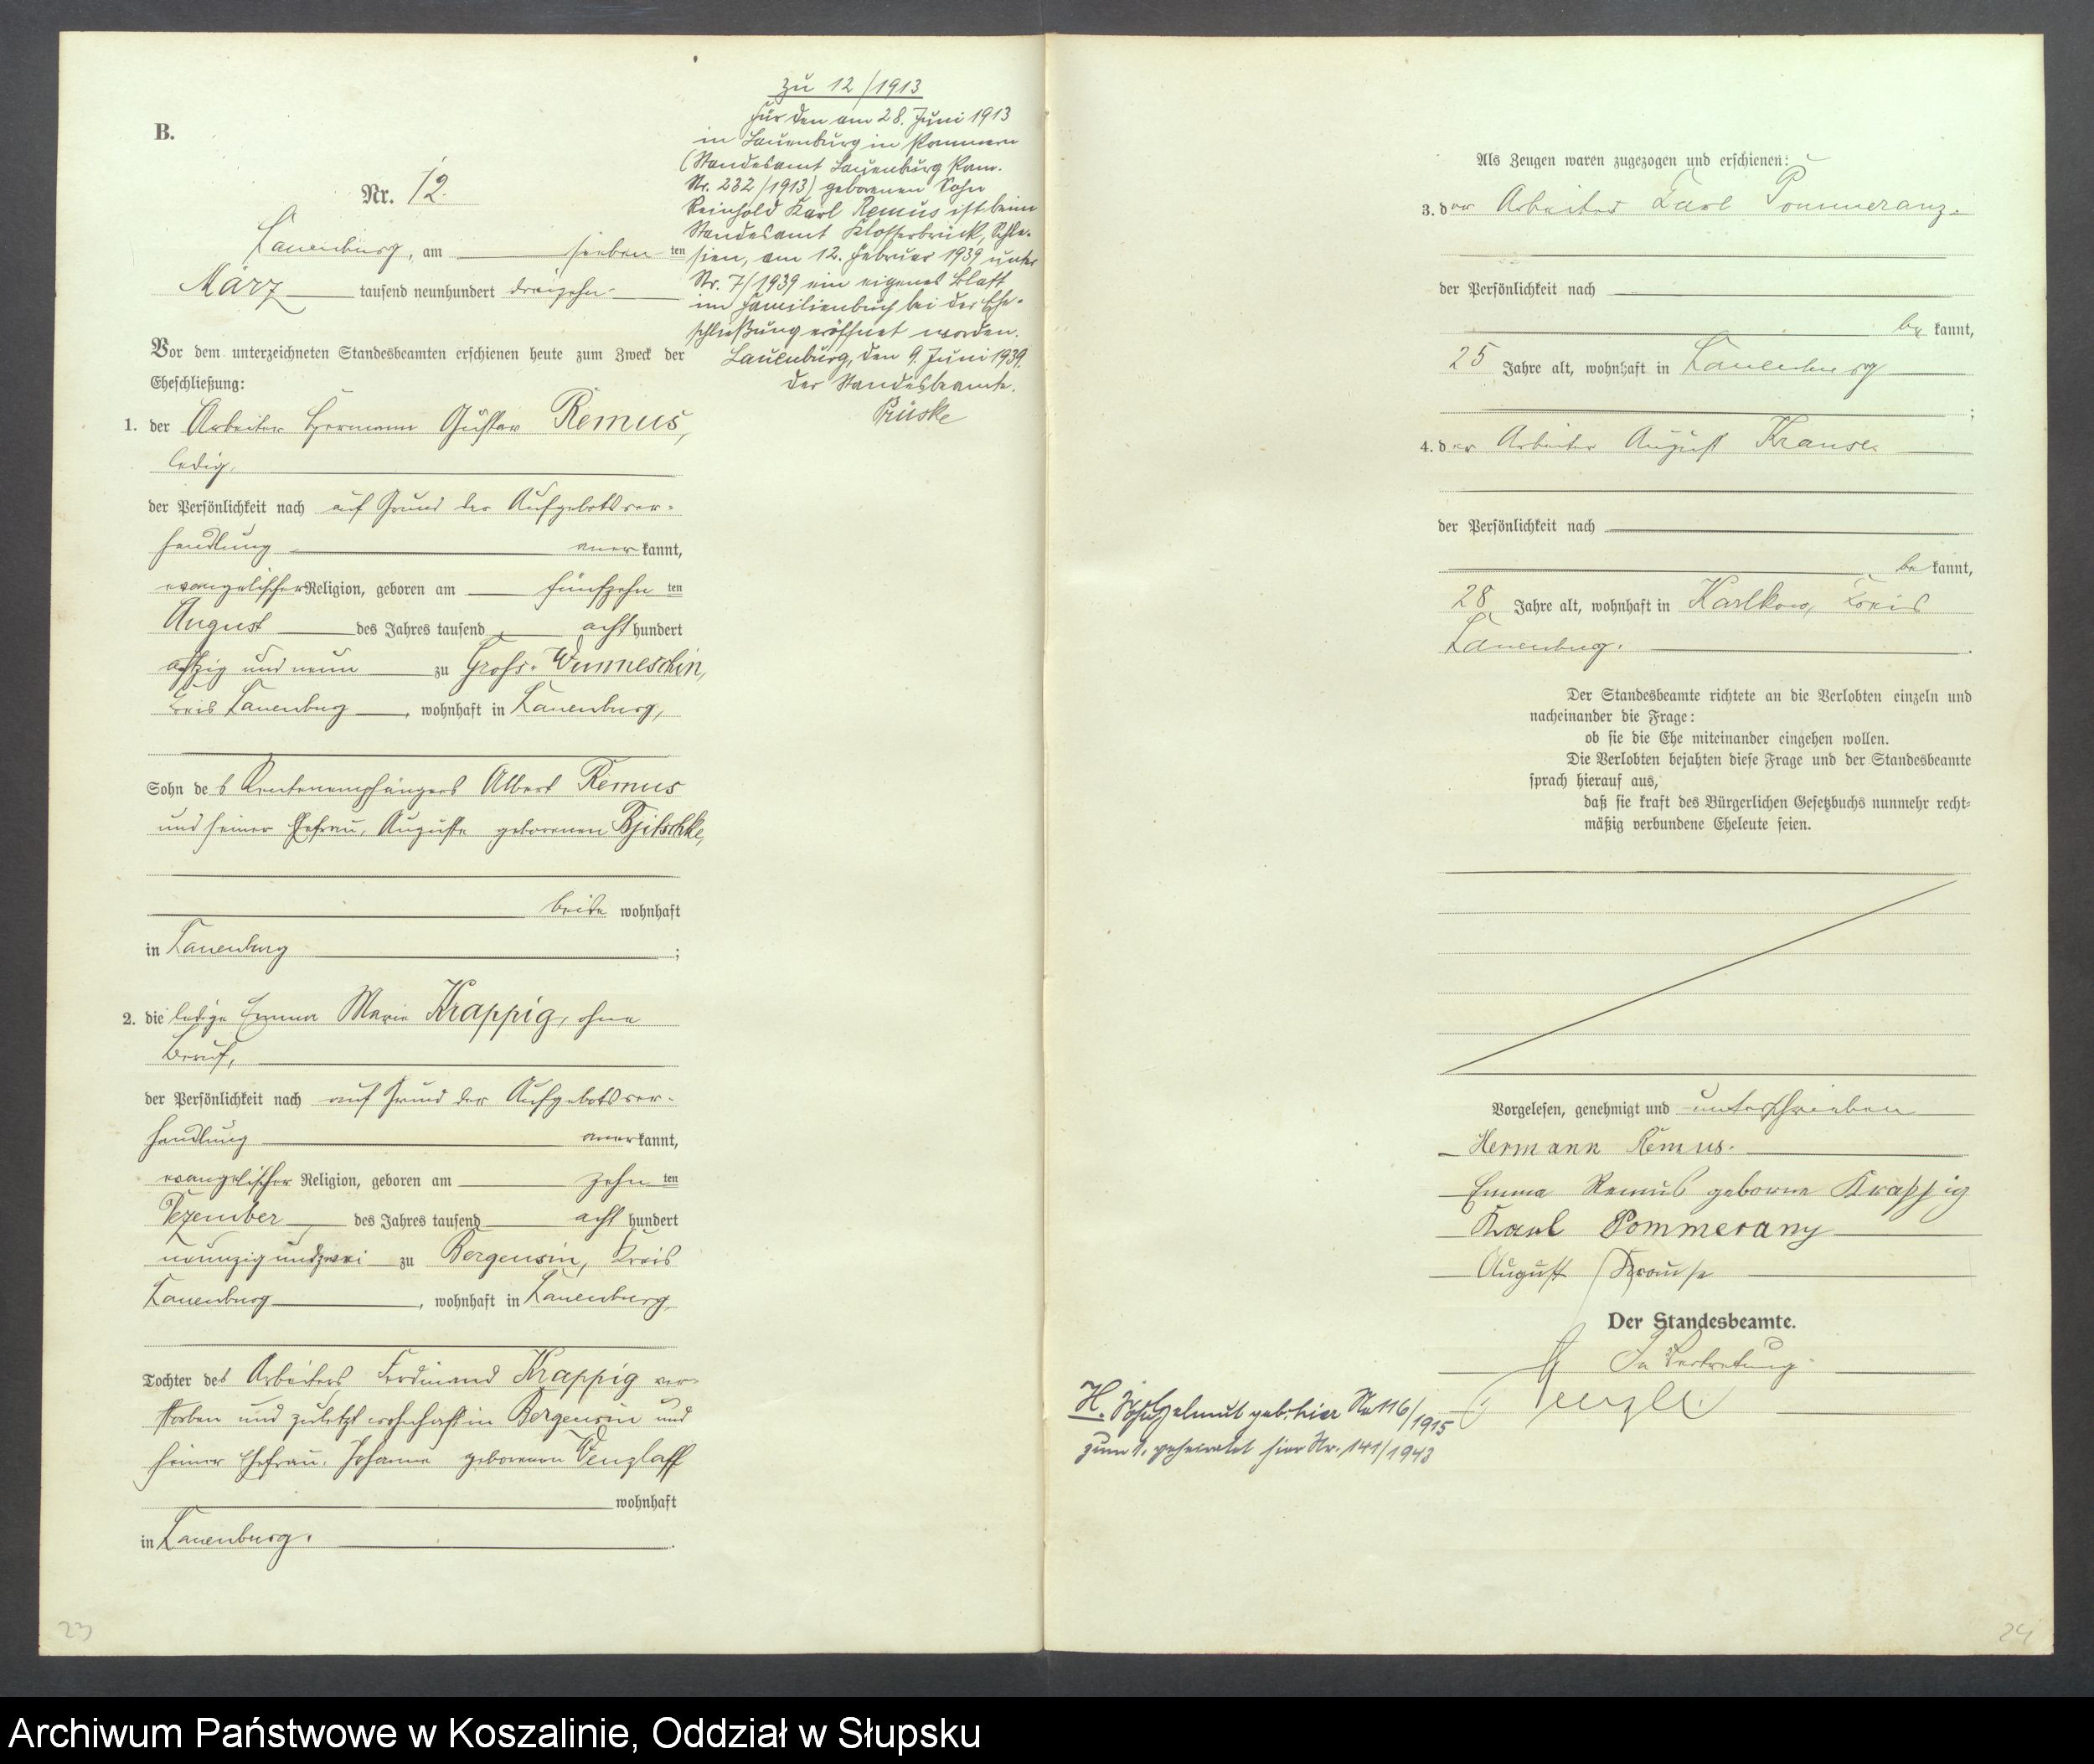 B.
Nr. 12.
Lauenburg, am sieben ten
März tausend neunhundert dreizehn
Vor dem unterzeichneten Standesbeamten erschienen heute zum Zweck der
Eheschließung:
1. der Arbeiter Hermann Gustav Remus,
ledig,
der Persönlichkeit nach auf Grund der Aufgebotsver-
handlung aner kannt,
evangelischer Religion, geboren am fünfzehn ten
August des Jahres tausend acht hundert
achtzig und neun zu Groß-Wunneschin,
Kreis Lauenburg, wohnhaft in Lauenburg,
Sohn des Rentenempfängers Albert Remus
und seiner Ehefrau, Auguste geborenen
beide wohnhaft
in Lauenburg;
2. die ledige Emma Marie Krappig, ohne
Beruf,
der Persönlichkeit nach auf Grund der Aufgebotsver-
handlung aner kannt,
evangelischer Religion, geboren am zehn ten
Dezember des Jahres tausend acht hundert
neunzig und zwei zu Bergensin, Kreis
Lauenburg, wohnhaft in Lauenburg,
Tochter des Arbeiters Ferdinand Krappig ver-
storben und zuletzt wohnhaft in Bergensin und
seiner Ehefrau, Johanna geborenen Venzlaff
wohnhaft
in Lauenburg.
zu 12/1913
Für den am 28. Juni 1913
in Lauenburg in Pommern
(Standesamt Lauenburg Pom.
Nr. 232/1913) geborenen Sohn
Reinhold Karl Remus ist beim
Standesamt Klosterbrück, Schle-
sien, am 12. Februar 1939 unter
Nr. 7/1939 ein eigenes Blatt
im Familienbuch bei der Ehe-
schließung eröffnet worden.
Lauenburg, den 9. Juni 1939.
Der Standesbeamte.
Prüske
23
Als Zeugen waren zugezogen und erschienen:
3. der Arbeiter Karl Pommeranz.
der Persönlichkeit nach
be kannt,
25 Jahre alt, wohnhaft in Lauenburg
;
4. der Arbeiter August Krause
der Persönlichkeit nach
be kannt,
28 Jahre alt, wohnhaft in Karlkow, Kreis
Lauenburg.
Der Standesbeamte richtete an die Verlobten einzeln und
nacheinander die Frage:
ob sie die Ehe miteinander eingehen wollen.
Die Verlobten bejahten diese Frage und der Standesbeamte
sprach hierauf aus,
daß sie kraft des Bürgerlichen Gesetzbuchs nunmehr recht-
mäßig verbundene Eheleute seien.
Vorgelesen, genehmigt und unterschrieben
Hermann Remus.
Emma Remus geborne Krappig
Karl Pommerany
August Krause
Der Standesbeamte.
In Vertretung.
H. Sohn Helmut geb. hier Nr 116/1915
zum 1. geheiratet hier Nr. 141/1943
24
Archiwum Państwowe w Koszalinie, Oddział w Słupsku